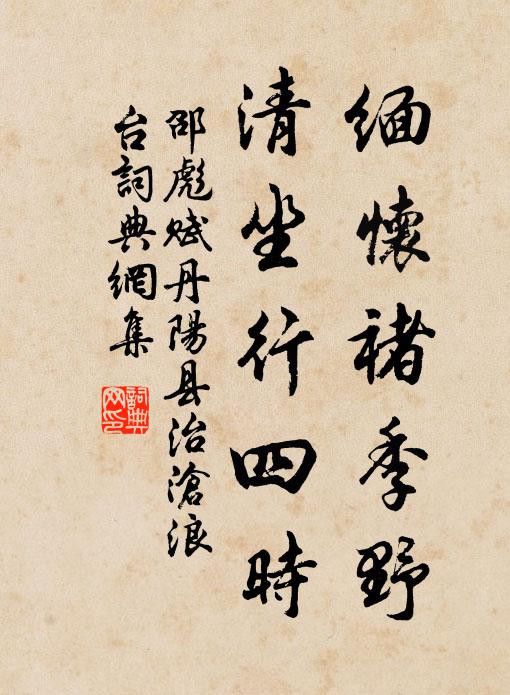 缅懷褚季野
清坐行四時
邵彪赋丹陽县治滄浪
台詞典網集
詞典网印